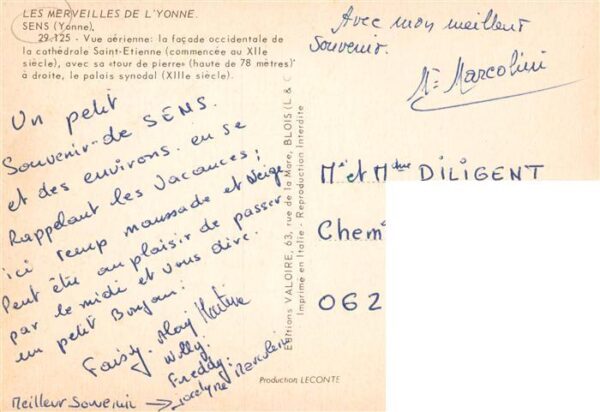 LES MERVEILLES DE L'YONNE.
SENS (Yonne),
29.125 - Vue aérienne: la façade occidentale de
la cathédrale Saint-Etienne (commencée au XIIe
siècle), avec sa «tour de pierre» (haute de 78 mètres)
à droite, le palais synodal (XIIIe siècle).
Un petit
Souvenir de SENS.
et des environs. en se
Rappelant les Vacances;
ici temp maussade et Neige
Peut être au plaisir de passer
par le midi et vous dire.
un petit Bonjour:
Martine
Willy.
Freddy.
Jocelyne Marcolini
Meilleur Souvenir
Editions VALOIRE, 63, rue de la Mare, BLOIS (L & C
Imprimé en Italie - Reproduction Interdite
Production LECONTE
Avec mon meilleur
Souvenir.
Marcolini
Mr et Mme DILIGENT
Chem
062